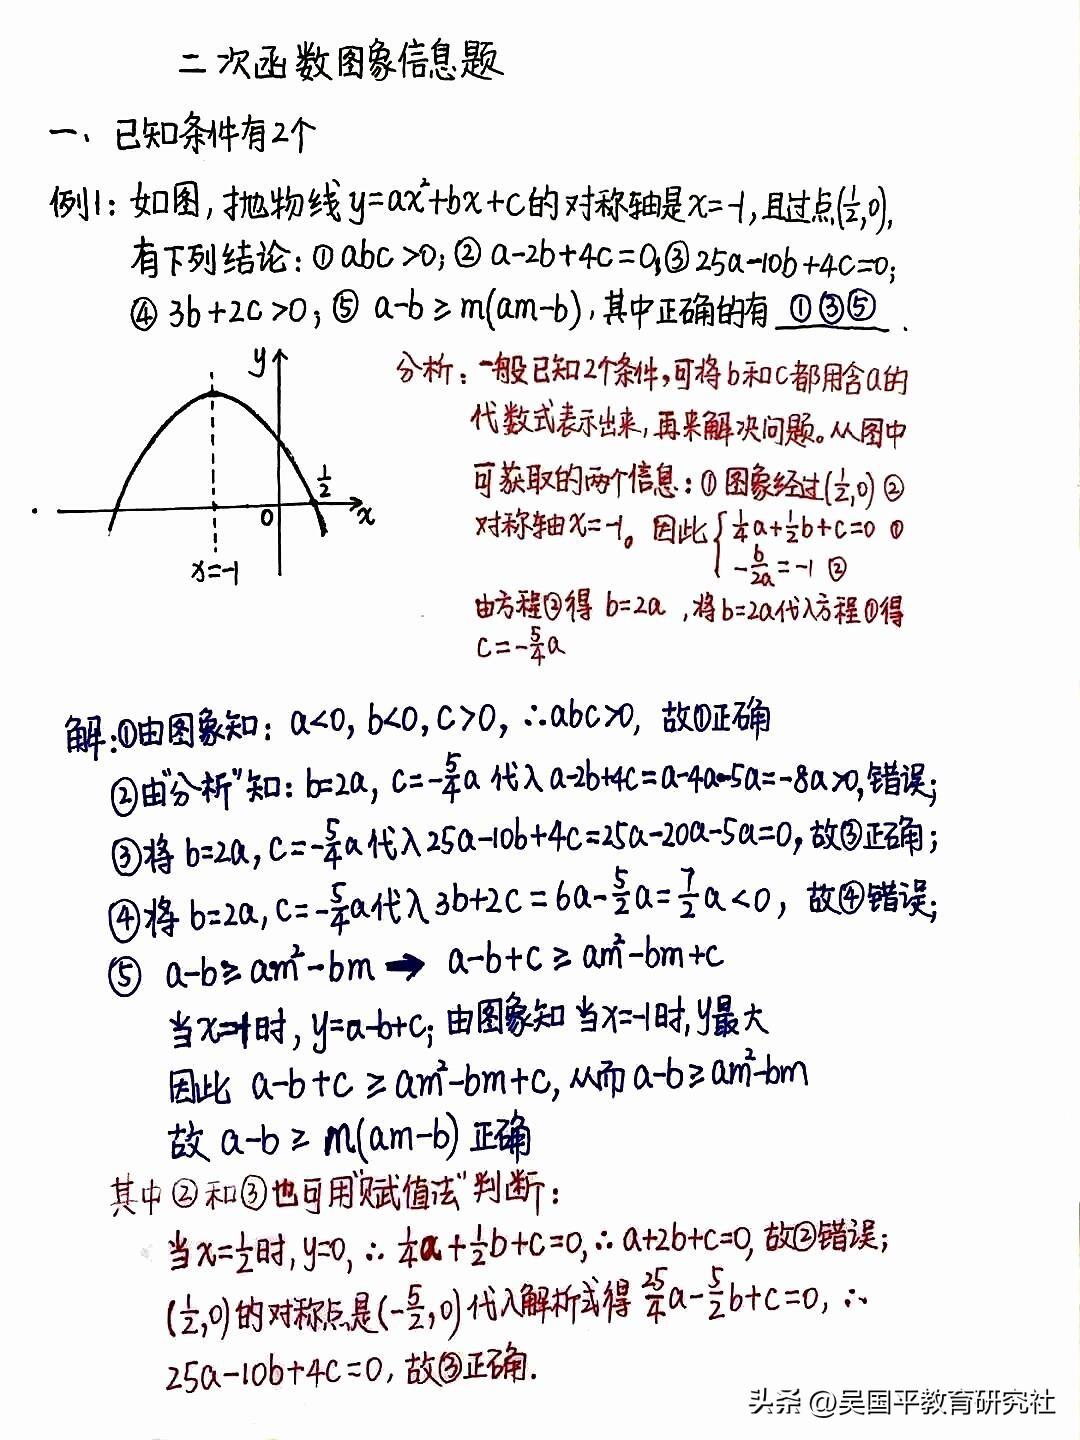 二次函数图象信息题
一、已知条件有2个
例1：如图，抛物线y=ax²+bx+c的对称轴是x=-1，且过点(1/2,0)，
有下列结论：①abc>0；②a-2b+4c=0；③25a-10b+4c=0；
④3b+2c>0；⑤a-b≥m(am-b)，其中正确的有 ①③⑤ .
y
1/2
0
x
x=-1
分析：一般已知2个条件，可将b和c都用含a的
代数式表示出来，再来解决问题。从图中
可获取的两个信息：①图象经过(1/2,0)②
对称轴x=-1。因此{1/4a+1/2b+c=0 ①
-b/2a=-1 ②
由方程②得 b=2a ，将b=2a代入方程①得
c=-5/4a
解：①由图象知：a<0，b<0，c>0，∴abc>0，故①正确
②由"分析"知：b=2a，c=-5/4a 代入a-2b+4c=a-4a-5a=-8a>0，错误；
③将b=2a，c=-5/4a代入25a-10b+4c=25a-20a-5a=0，故③正确；
④将b=2a，c=-5/4a代入3b+2c=6a-5/2a=7/2a<0，故④错误；
⑤ a-b≥am²-bm → a-b+c≥am²-bm+c
当x=-1时，y=a-b+c；由图象知当x=-1时，y最大
因此 a-b+c≥am²-bm+c，从而a-b≥am²-bm
故 a-b≥m(am-b)正确
其中②和③也可用"赋值法"判断：
当x=1/2时，y=0，∴1/4a+1/2b+c=0，∴a+2b+c=0，故②错误；
(1/2,0)的对称点是(-5/2,0)代入解析式得25/4a-5/2b+c=0，∴
25a-10b+4c=0，故③正确.
头条 @吴国平教育研究社